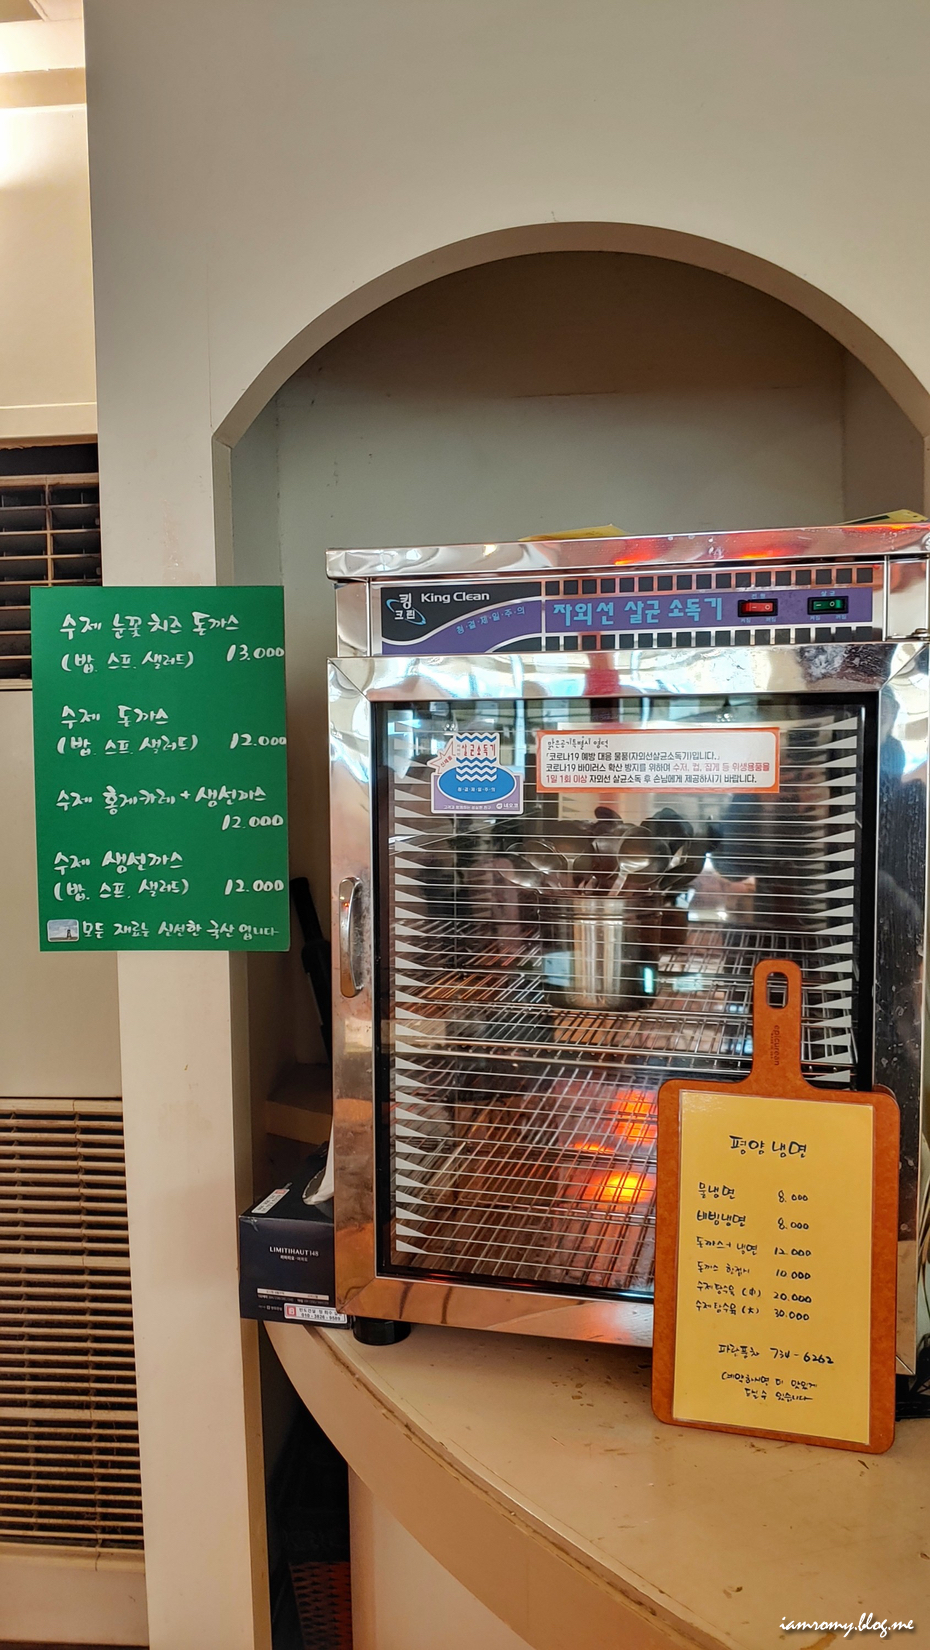 수제 눈꽃 치즈 돈까스
(밥. 스프. 샐러드) 13.000
수제 돈까스
(밥. 스프. 샐러드) 12.000
수제 홍게카레 + 생선까스
12.000
수제 생선까스
(밥. 스프. 샐러드) 12.000
모든 재료는 신선한 국산 입니다
킹크린
King Clean
청·결·제·일·주·의
자외선 살균 소독기
살균소독기
청·결·제·일·주·의
맑은공기특별시 영덕
「코로나19 예방 대응 물품(자외선살균소독기)입니다.」
코로나19 바이러스 확산 방지를 위하여 수저, 컵, 집게 등 위생용품을
1일 1회 이상 자외선 살균소독 후 손님에게 제공하시기 바랍니다.
epicurean
평양 냉면
물냉면 8.000
비빔냉면 8.000
돈까스+냉면 12.000
돈까스 한접시 10.000
수제탕수육 (中) 20.000
수제탕수육 (大) 30.000
파란풍차 734-6262
(예약하시면 더 맛있게
드실수 있습니다
LIMITIHAUT148
iamromy.blog.me